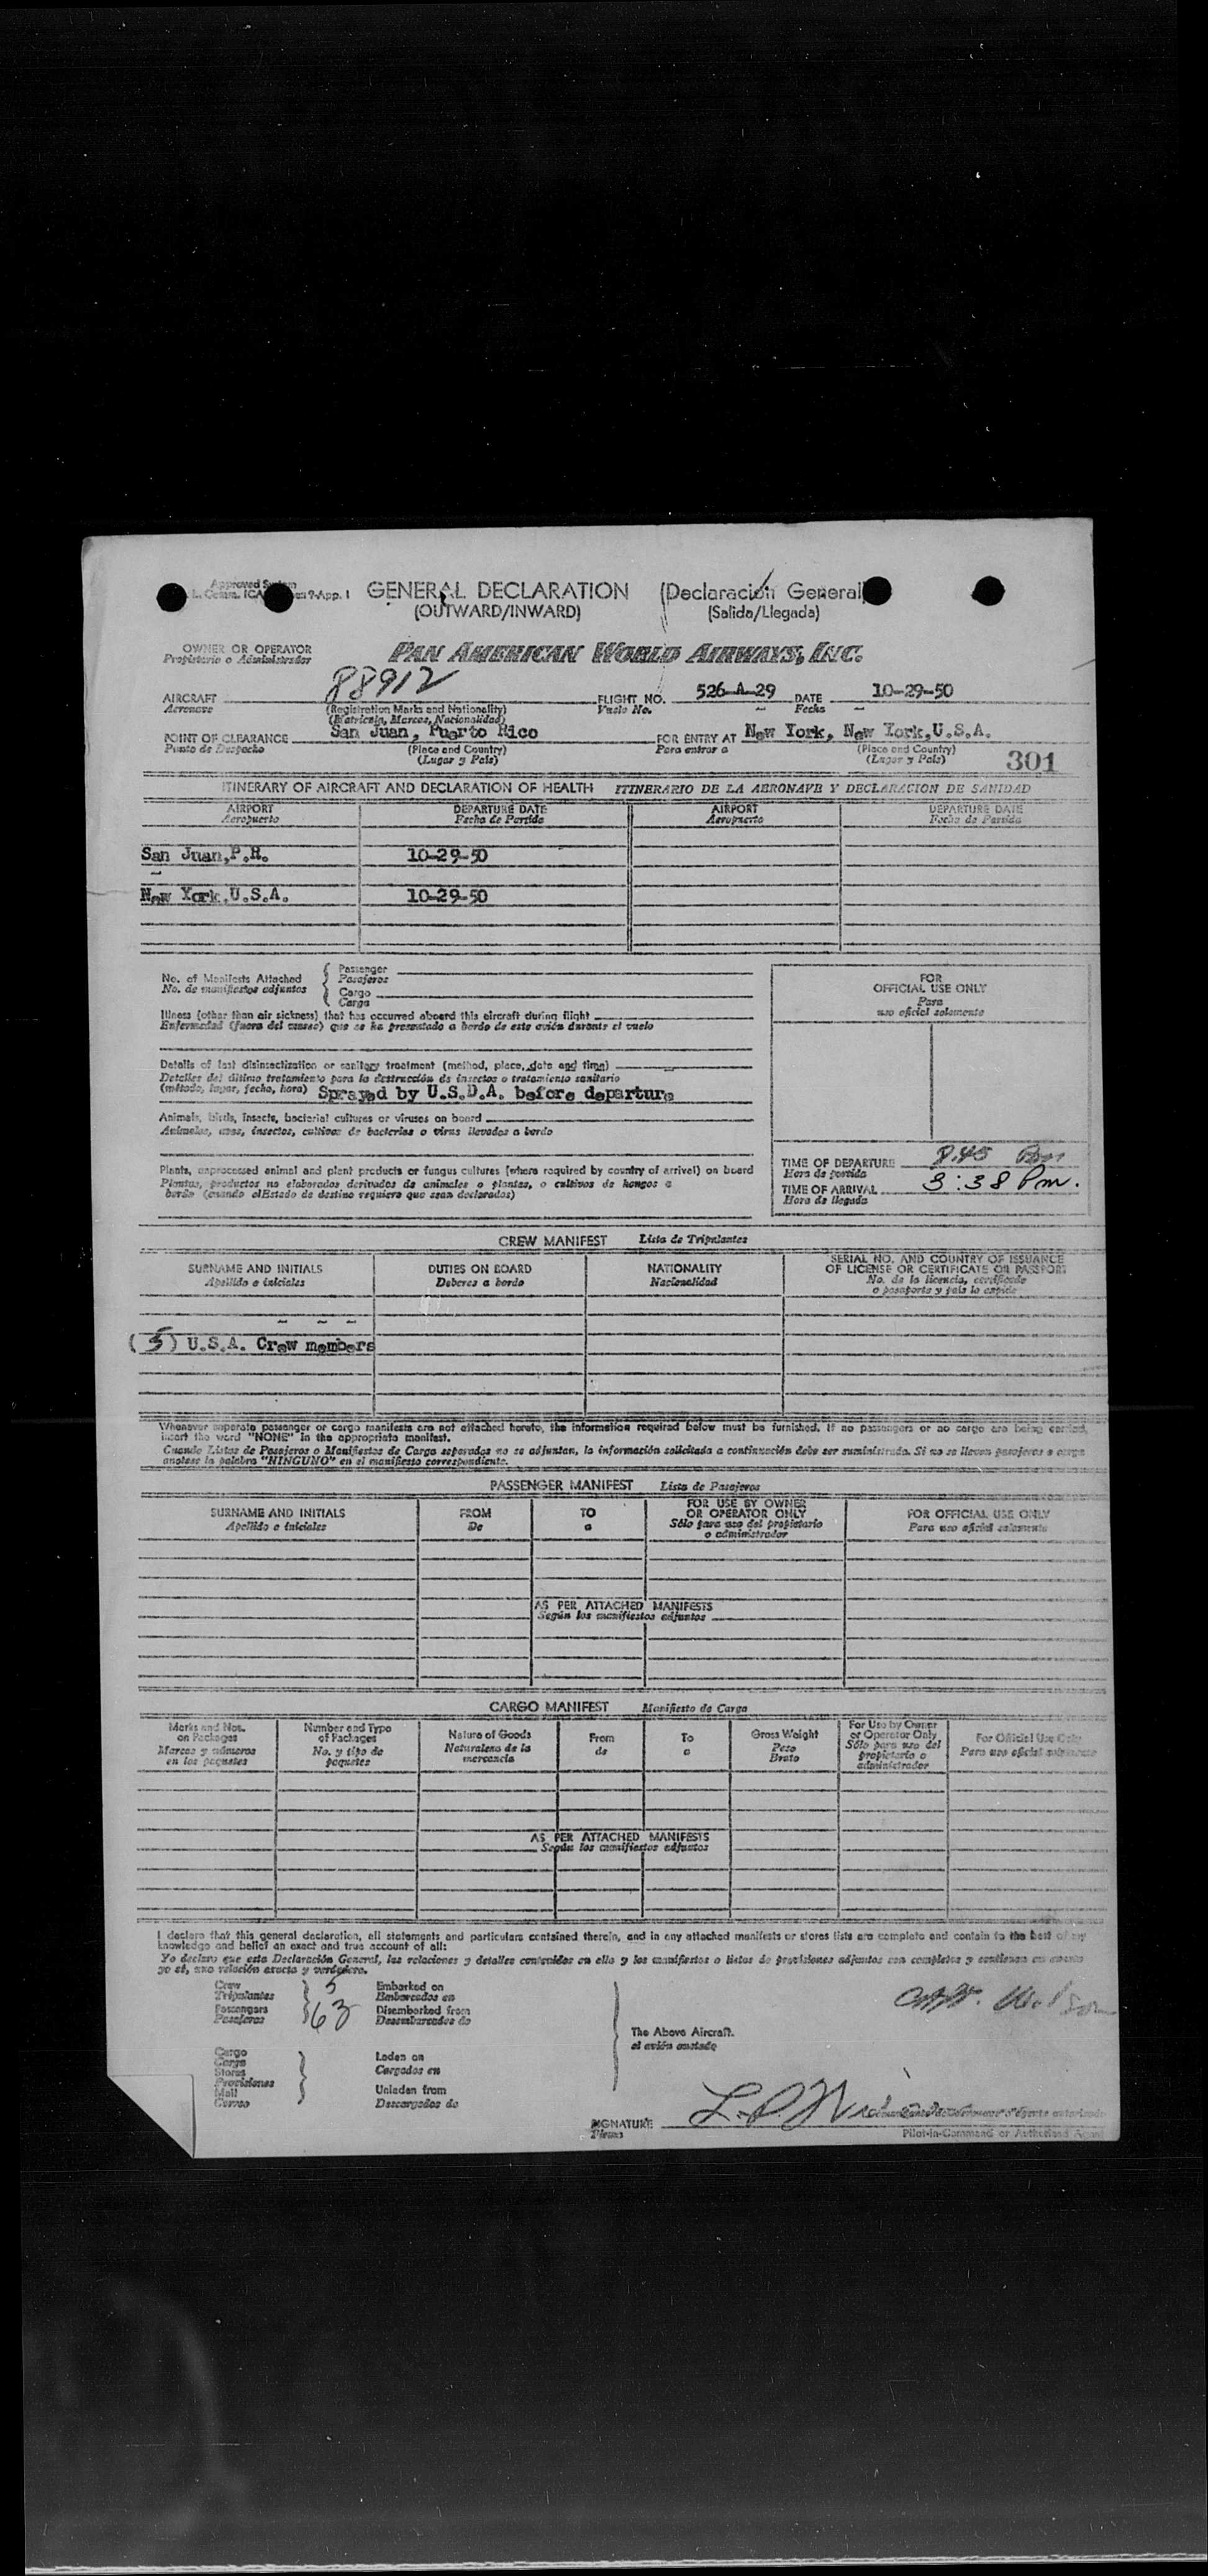 GENERAL DECLARATION (Declaración General)
(OUTWARD/INWARD) (Salida/Llegada)
OWNER OR OPERATOR
Propietario o Administrador
PAN AMERICAN WORLD AIRWAYS, INC.
AIRCRAFT 88912 FLIGHT NO. 526-A-29 DATE 10-29-50
Aeronave (Registration Marks and Nationality) Vuelo No. Fecha
(Matricula, Marcas, Nacionalidad)
POINT OF CLEARANCE San Juan, Puerto Rico FOR ENTRY AT New York, New York, U.S.A.
Punto de Despacho (Place and Country) Para entrar a (Place and Country)
(Lugar y País) (Lugar y País) 301
ITINERARY OF AIRCRAFT AND DECLARATION OF HEALTH ITINERARIO DE LA AERONAVE Y DECLARACION DE SANIDAD
AIRPORT DEPARTURE DATE AIRPORT DEPARTURE DATE
Aeropuerto Fecha de Partida Aeropuerto Fecha de Partida
San Juan, P.R. 10-29-50
New York, U.S.A. 10-29-50
No. of Manifests Attached Passenger
No. de manifiestos adjuntos Pasajeros
Cargo
Carga
FOR
OFFICIAL USE ONLY
Para
uso oficial solamente
Illness (other than air sickness) that has occurred aboard this aircraft during flight
Enfermedad (fuera del mareo) que se ha presentado a bordo de este avión durante el vuelo
Details of last disinsectization or sanitary treatment (method, place, date and time)
Detalles del último tratamiento para la destrucción de insectos o tratamiento sanitario
(método, lugar, fecha, hora) Sprayed by U.S.D.A. before departure
Animals, birds, insects, bacterial cultures or viruses on board
Animales, aves, insectos, cultivos de bacterias o virus llevados a bordo
Plants, unprocessed animal and plant products or fungus cultures (where required by country of arrival) on board
Plantas, productos no elaborados derivados de animales o plantas, o cultivos de hongos a
bordo (cuando el Estado de destino requiera que sean declarados)
TIME OF DEPARTURE
Hora de partida
TIME OF ARRIVAL 3:38 Pm.
Hora de llegada
CREW MANIFEST Lista de Tripulantes
SURNAME AND INITIALS DUTIES ON BOARD NATIONALITY SERIAL NO. AND COUNTRY OF ISSUANCE
OF LICENSE OR CERTIFICATE OR PASSPORT
Apellido e iniciales Deberes a bordo Nacionalidad No. de la licencia, certificado
o pasaporte y país lo expide
(5) U.S.A. Crew members
Whenever separate passenger or cargo manifests are not attached hereto, the information required below must be furnished. If no passengers or no cargo are being carried,
insert the word "NONE" in the appropriate manifest.
Cuando Listas de Pasajeros o Manifiestos de Carga separados no se adjuntan, la información solicitada a continuación debe ser suministrada. Si no se llevan pasajeros o carga
anótese la palabra "NINGUNO" en el manifiesto correspondiente.
PASSENGER MANIFEST Lista de Pasajeros
SURNAME AND INITIALS FROM TO FOR USE BY OWNER
OR OPERATOR ONLY FOR OFFICIAL USE ONLY
Apellido e iniciales De a Sólo para uso del propietario
o administrador Para uso oficial solamente
AS PER ATTACHED MANIFESTS
Según los manifiestos adjuntos
CARGO MANIFEST Manifiesto de Carga
Marks and Nos.
on Packages
Marcas y números
en los paquetes
Number and Type
of Packages
No. y tipo de
paquetes
Nature of Goods
Naturaleza de la
mercancía
From
de
To
a
Gross Weight
Peso
Bruto
For Use by Owner
or Operator Only
Sólo para uso del
propietario o
administrador
For Official Use Only
Para uso oficial solamente
AS PER ATTACHED MANIFESTS
Según los manifiestos adjuntos
I declare that this general declaration, all statements and particulars contained therein, and in any attached manifests or stores lists are complete and contain to the best of my
knowledge and belief an exact and true account of all:
Yo declaro que esta Declaración General, las relaciones y detalles contenidos en ella y los manifiestos o listas de provisiones adjuntos son completos y contienen en cuanto
yo sé, una relación exacta y verdadera.
Crew 5 Embarked on
Tripulantes Embarcados en
Passengers 63 Disembarked from
Pasajeros Desembarcados de
The Above Aircraft.
el avión anotado
Cargo
Carga
Stores
Provisiones
Mail
Correo
Laden on
Cargados en
Unladen from
Descargados de
SIGNATURE
Firma
Pilot-in-Command or Authorized Agent